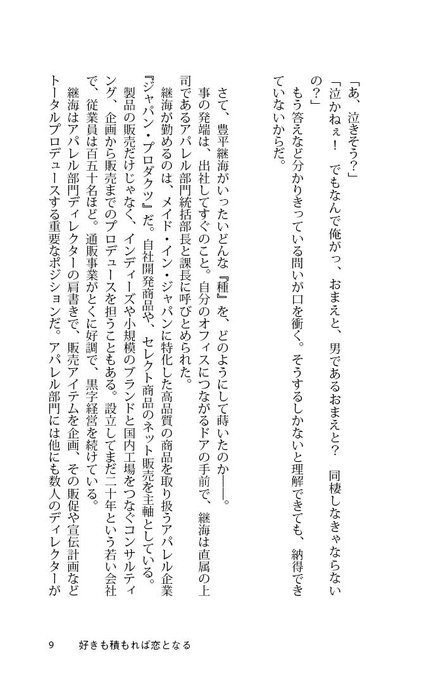 「あ、泣きそう？」
「泣かねぇ！　でもなんで俺がっ、おまえと、男であるおまえと？　同棲しなきゃならない
の？」
もう答えなど分かりきっている問いが口を衝く。そうするしかないと理解できても、納得でき
ていないからだ。
さて、豊平継海がいったいどんな『種』を、どのようにして蒔いたのか――。
事の発端は、出社してすぐのこと。自分のオフィスにつながるドアの手前で、継海は直属の上
司であるアパレル部門統括部長と課長に呼びとめられた。
継海が勤めるのは、メイド・イン・ジャパンに特化した高品質の商品を取り扱うアパレル企業
『ジャパン・プロダクツ』だ。自社開発商品や、セレクト商品のネット販売を主軸としている。
製品の販売だけじゃなく、インディーズや小規模のブランドと国内工場をつなぐコンサルティ
ング、企画から販売までのプロデュースを担うこともある。設立してまだ二十年という若い会社
で、従業員は百五十名ほど。通販事業がとくに好調で、黒字経営を続けている。
継海はアパレル部門ディレクターの肩書きで、販売アイテムを企画、その販促や宣伝計画など
トータルプロデュースする重要なポジションだ。アパレル部門には他にも数人のディレクターが
9　好きも積もれば恋となる